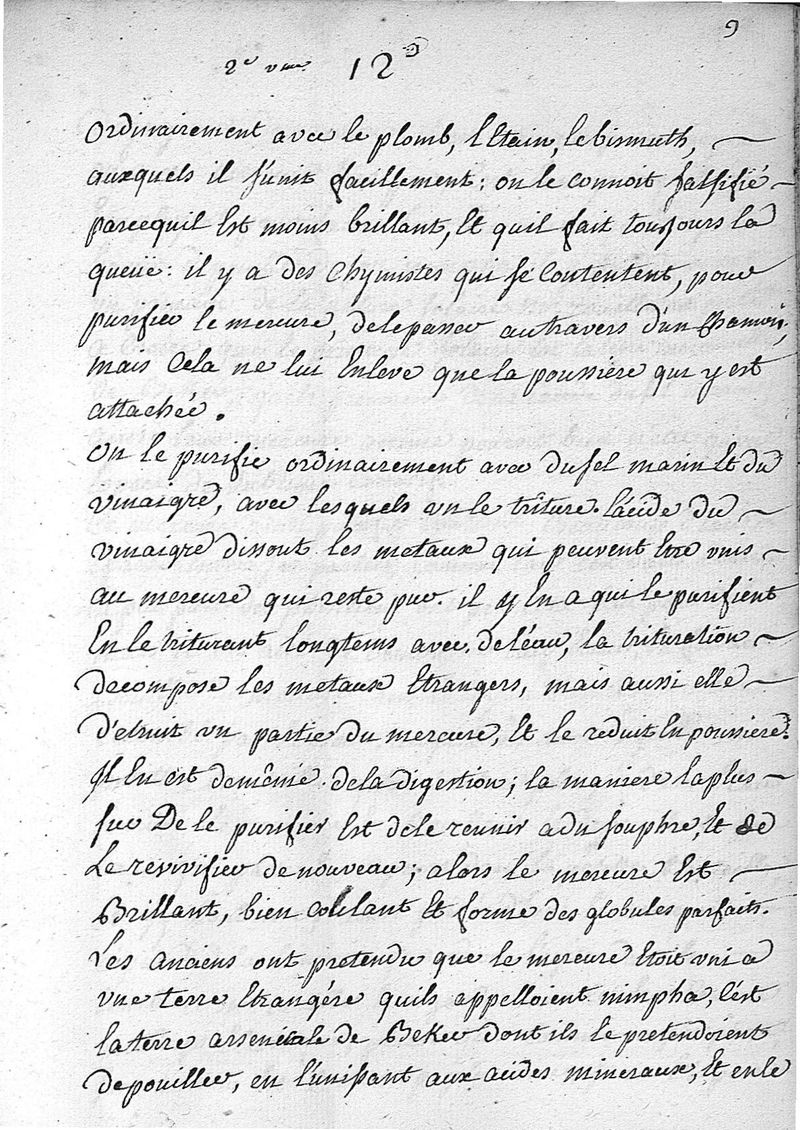 9
2e vue 12e
ordinairement avec le plomb, l'Etain, le bismuth,
auxquels il s'unit facillement; on le connoit falsifié
parcequil Est moins brillant, Et quil fait toujours la
queüe: il y a des Chymistes qui se Contentent, pour
purifier le mercure, de le passer au travers d'un Chamois,
mais Cela ne lui Enleve que la poussiere qui y est
attachée.
On le purifie ordinairement avec du sel marin Et du
vinaigre, avec lesquels on le triture. l'acide du
vinaigre dissout les metaux qui peuvent Etre unis
au mercure qui reste pur. il y En a qui le purifient
En le triturant longtems avec de l'éau, la trituration
decompose les metaux Etrangers, mais aussi elle
d'etruit un partie du mercure, Et le reduit En poussiere.
Il En est de même de la digestion; la maniere la plus
sur De le purifier Est de le reunir a du souphre, Et de
Le revivifier de nouveau; alors le mercure Est
Brillant, bien coulant Et forme des globules parfaits.
Les Anciens ont pretendu que le mercure Etoit uni a
une terre Etrangére quils appelloient nimpha, C'est
la terre arsenicale de Beker dont ils le pretendoient
depouiller, en l'unissant aux acides mineraux, Et en le